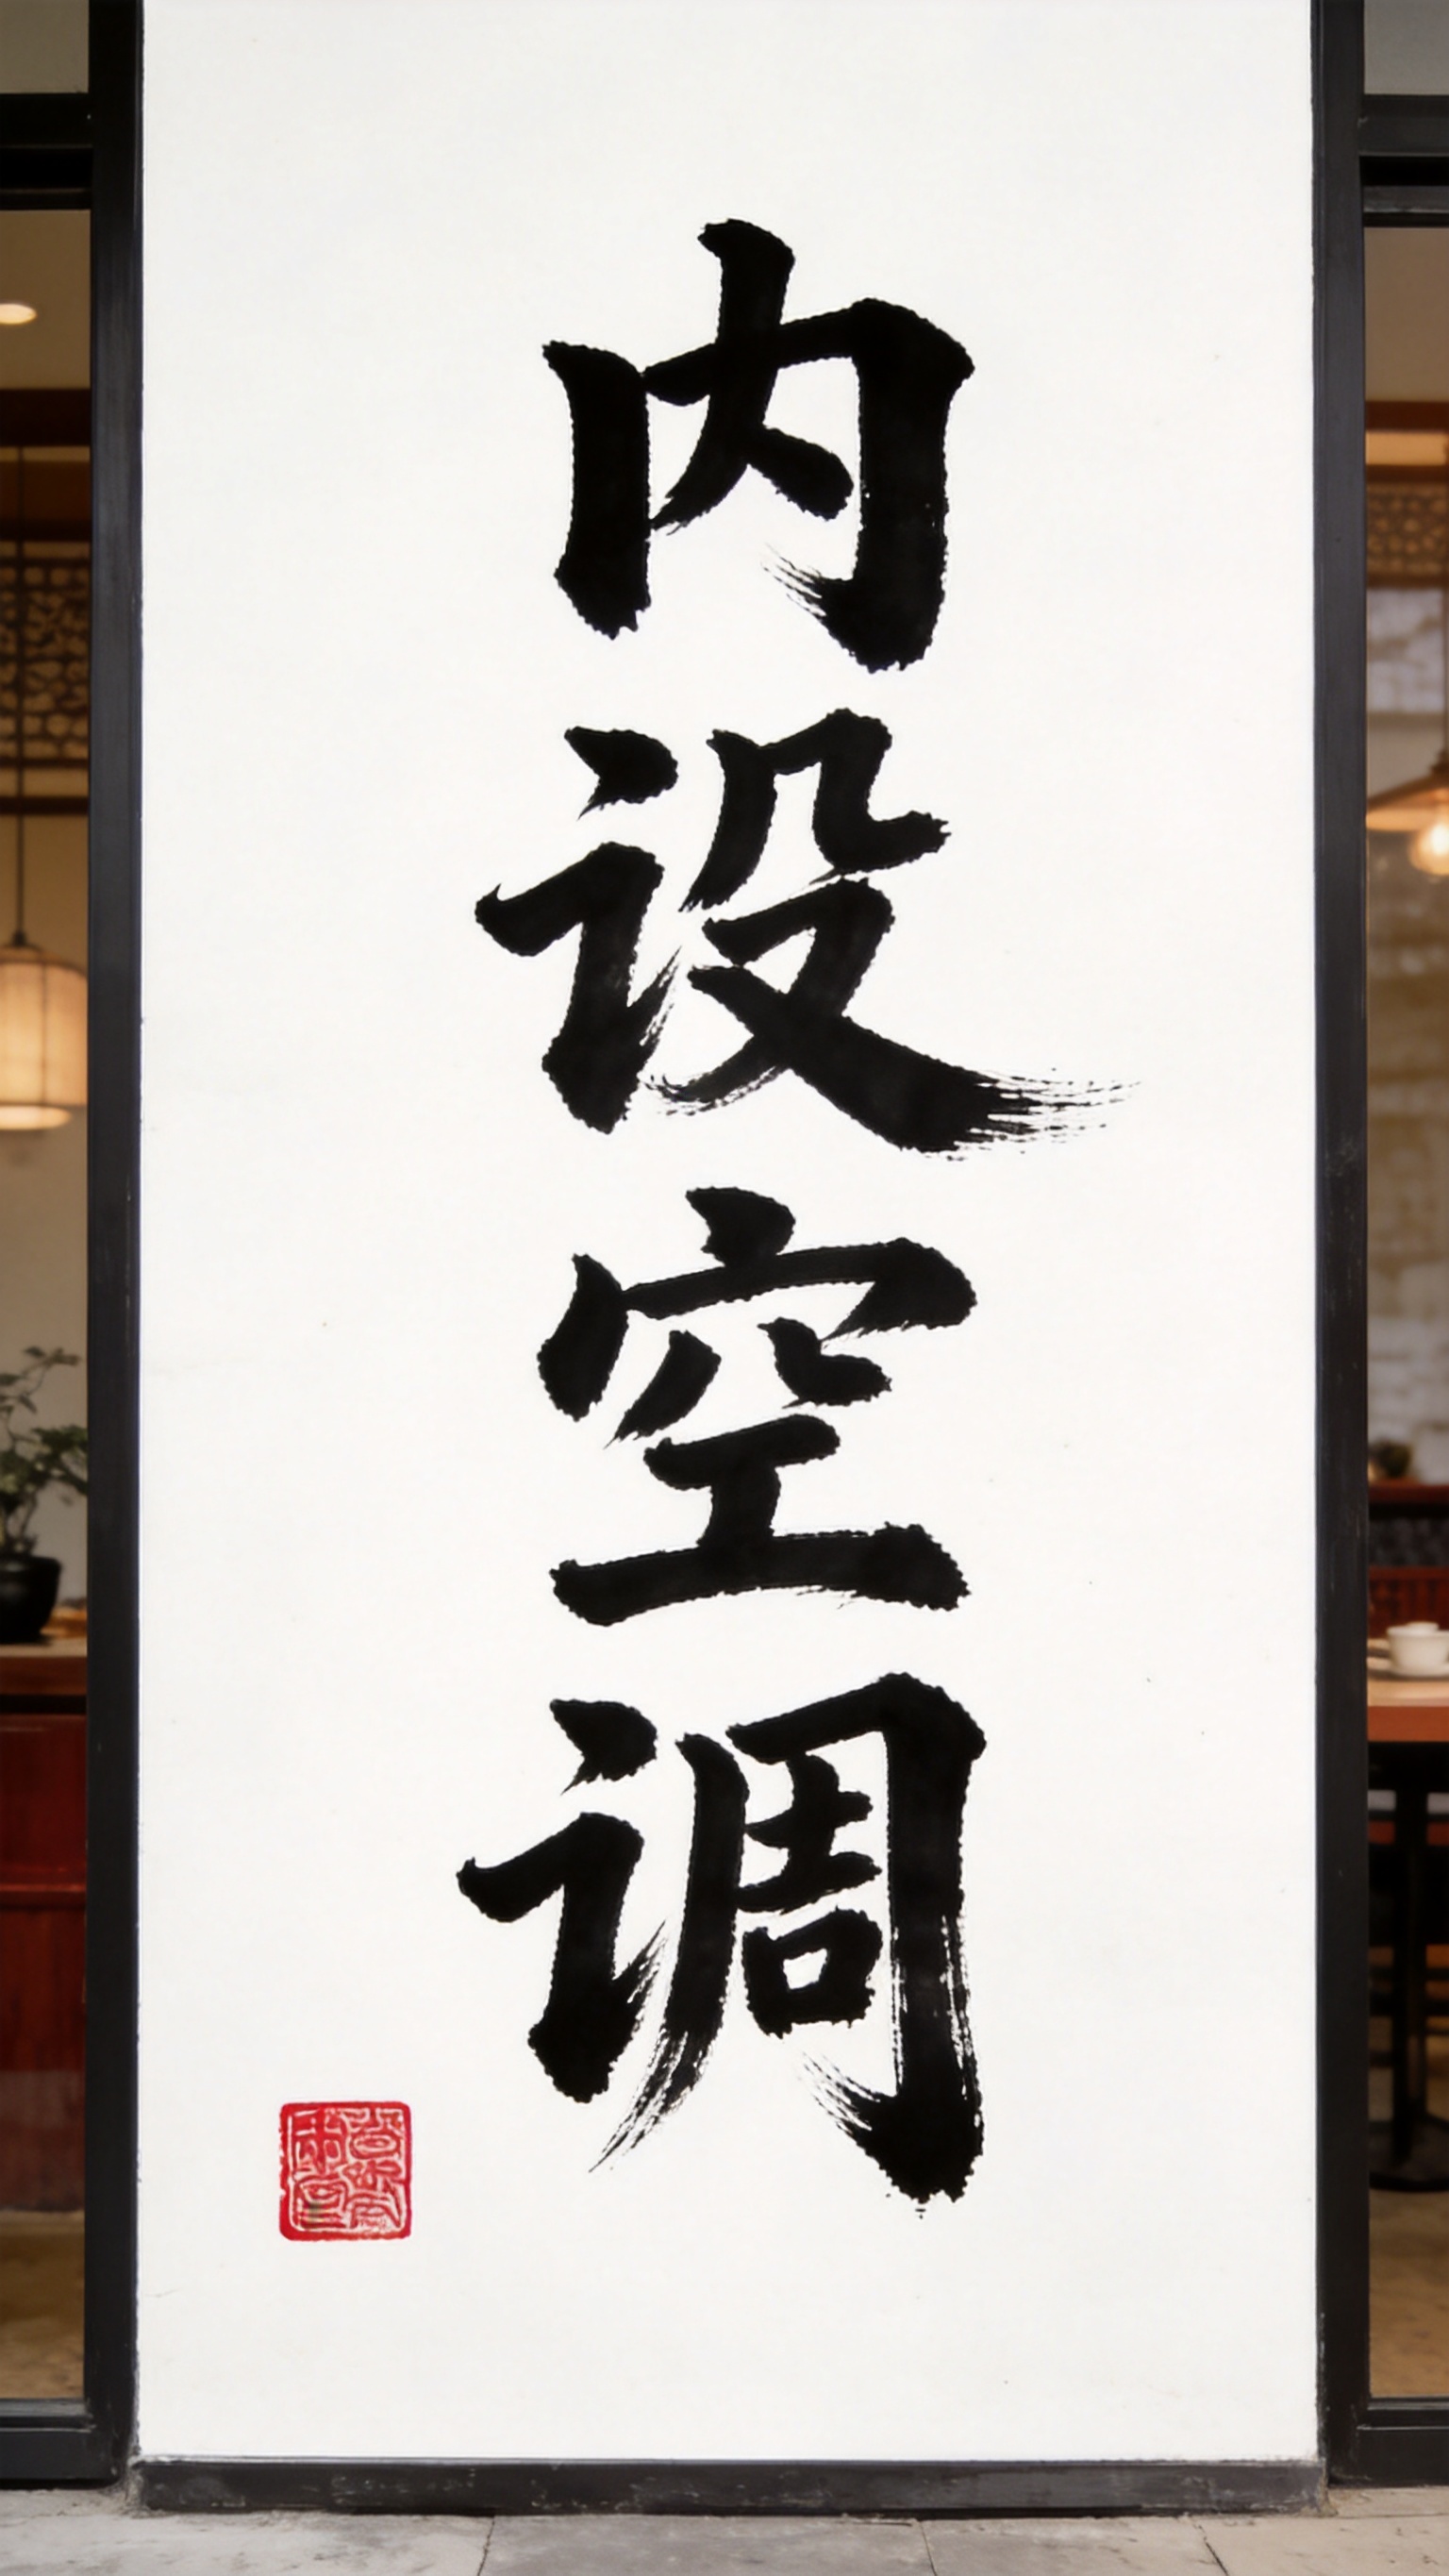 内设空调